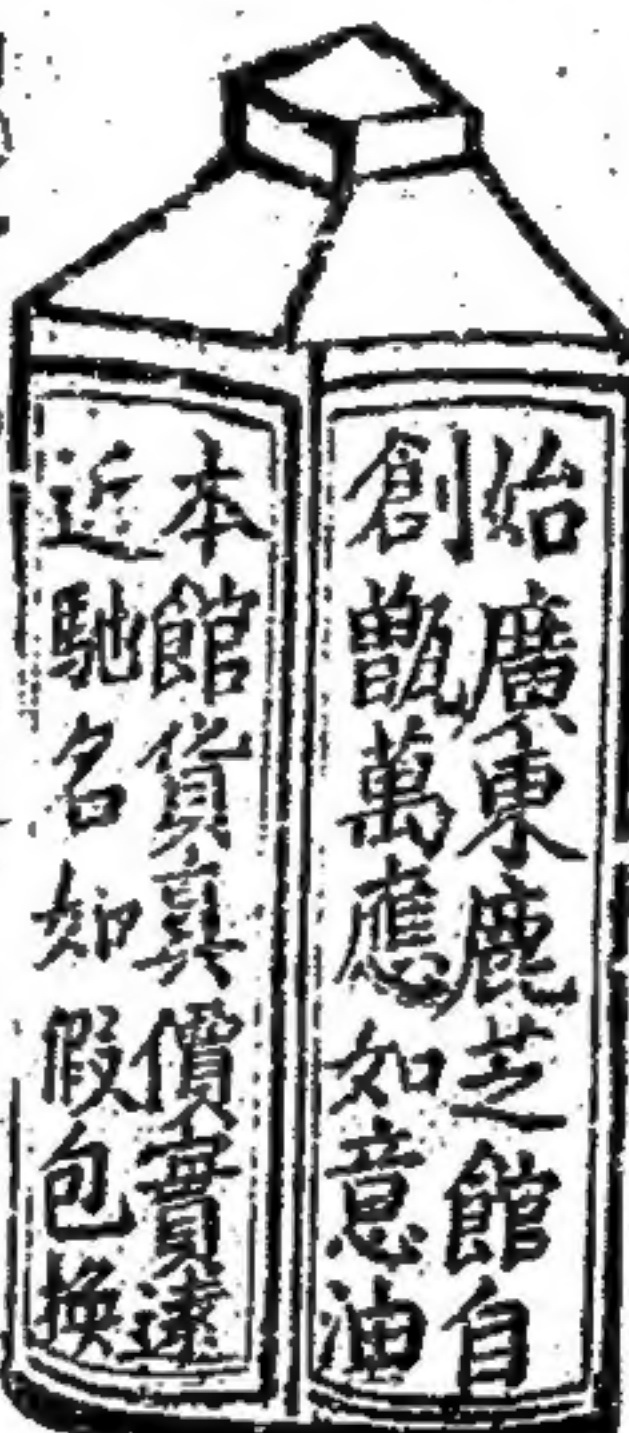 始廣東鹿芝館自
創甑萬應如意油
本館貨真價實遠
近馳名如假包換